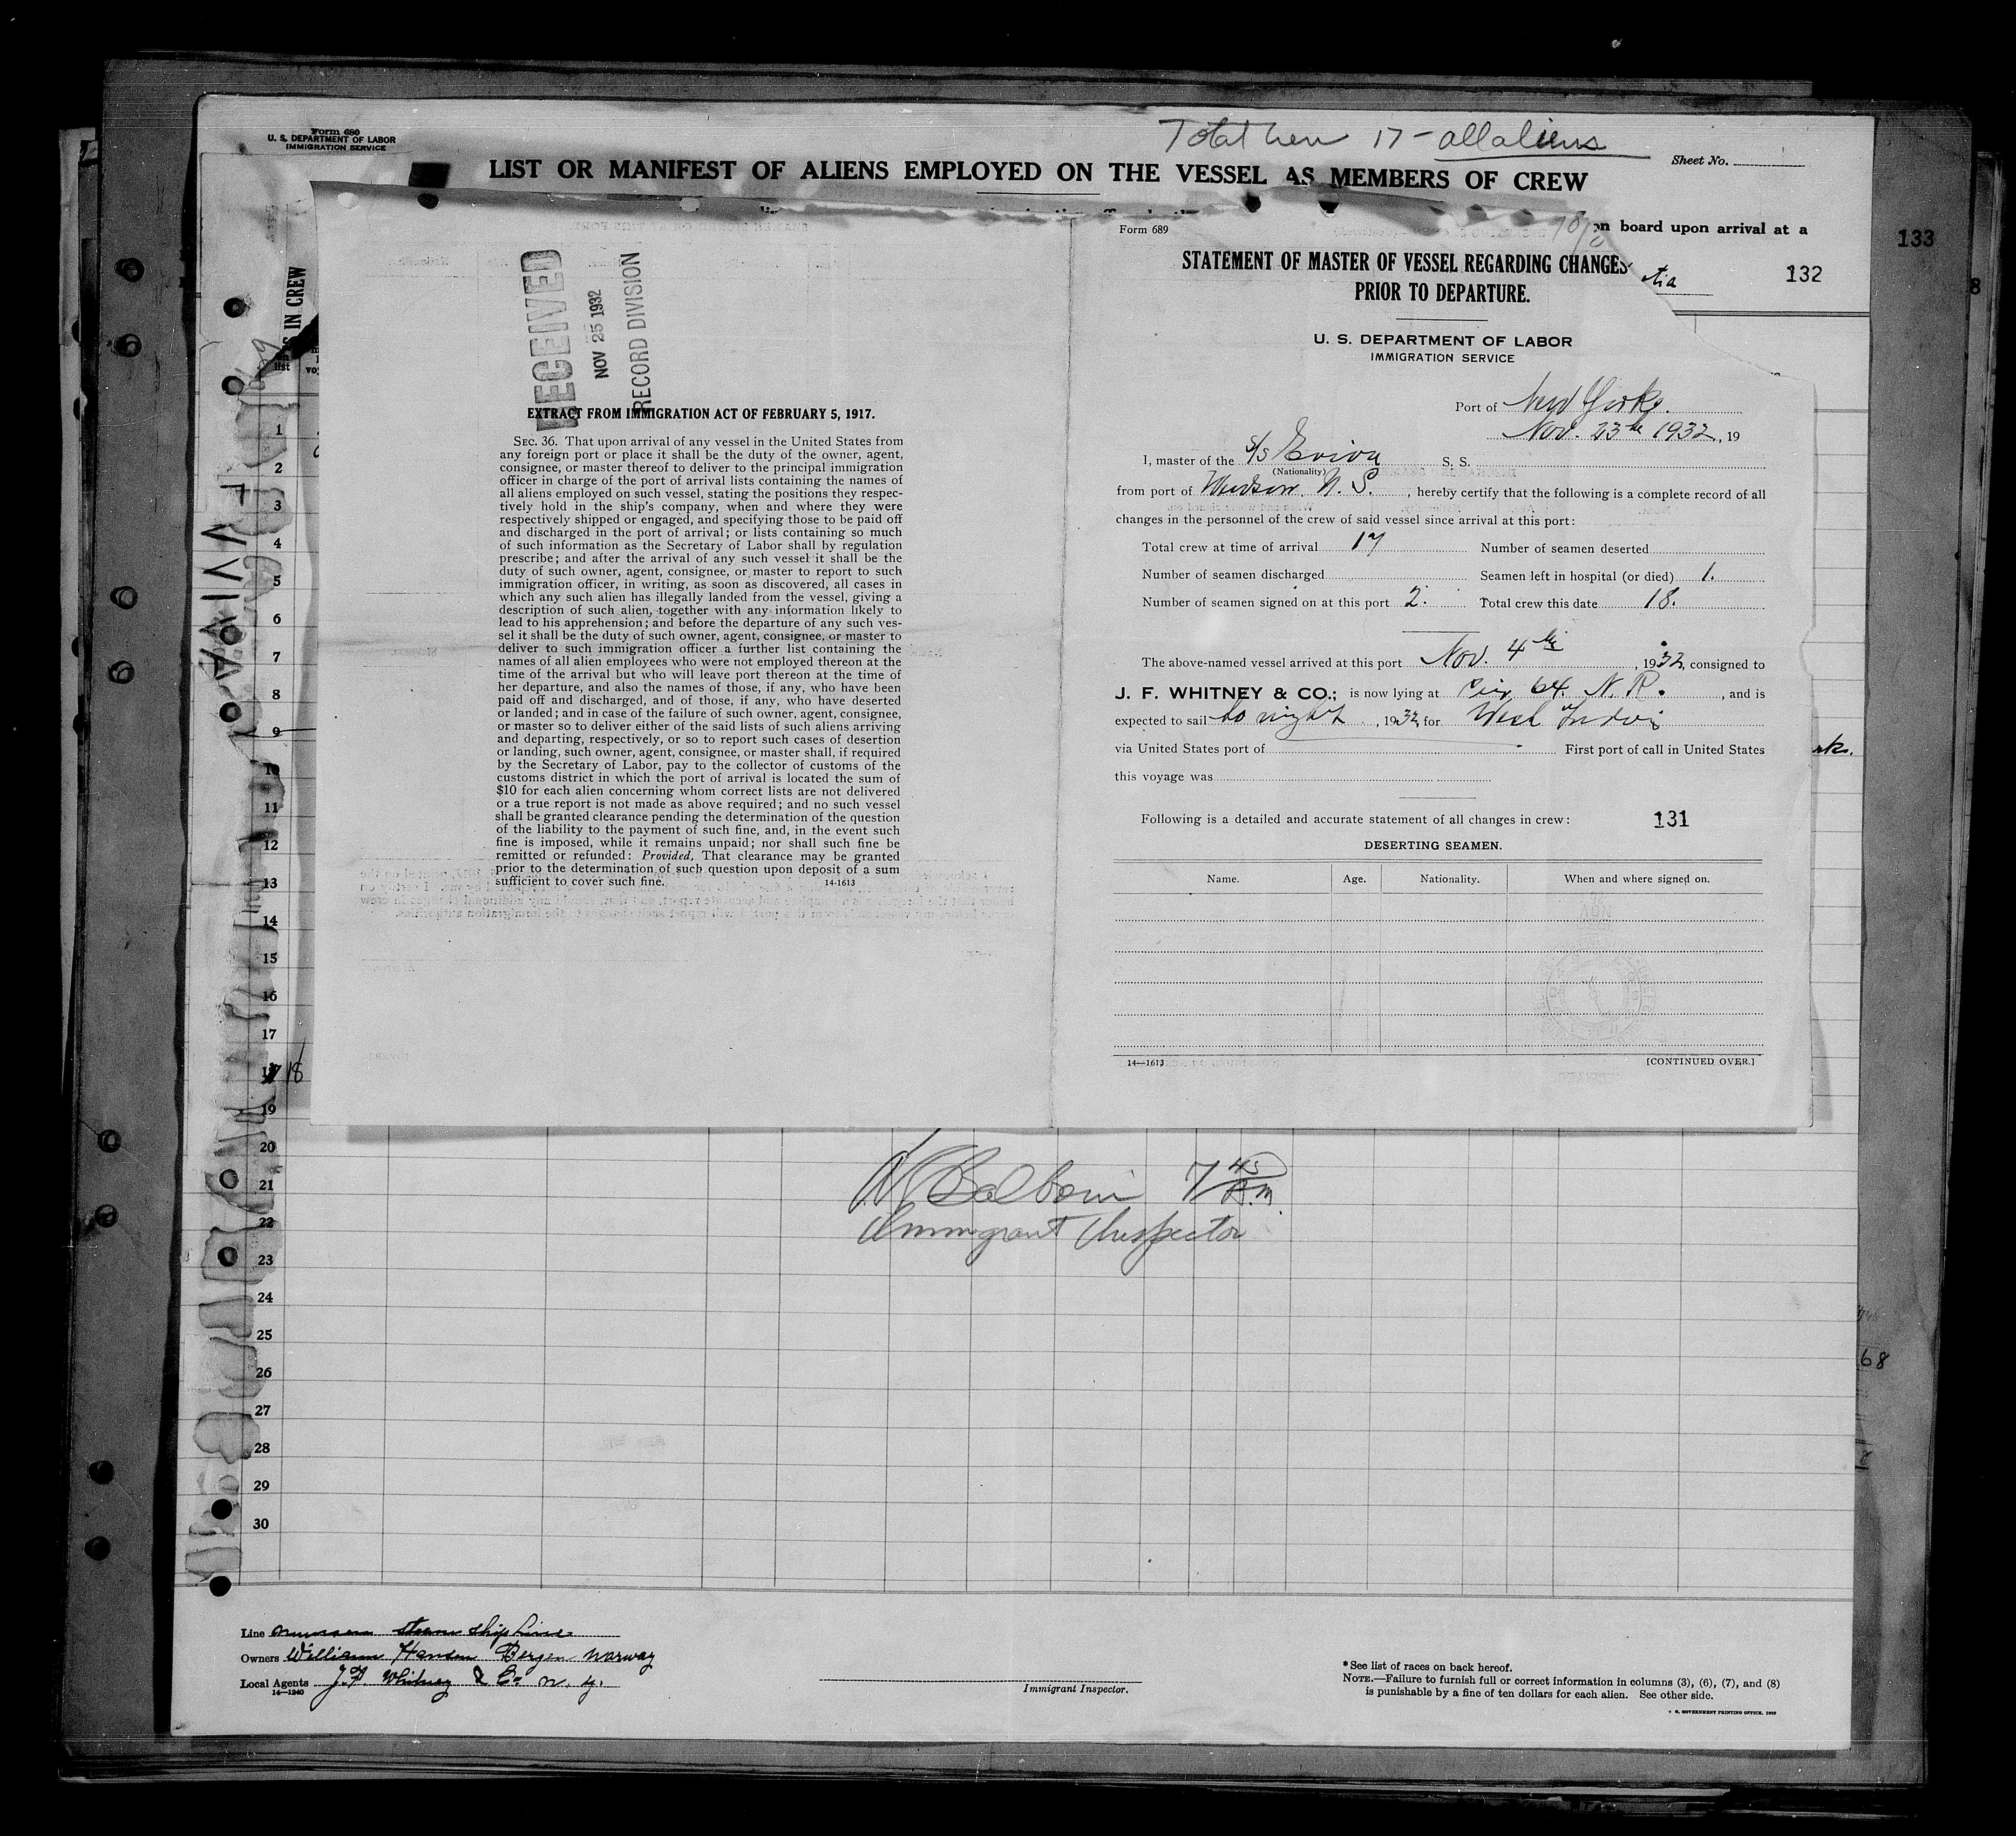 Form 680
U. S. DEPARTMENT OF LABOR
IMMIGRATION SERVICE
Total Crew 17 - all aliens
Sheet No.
LIST OR MANIFEST OF ALIENS EMPLOYED ON THE VESSEL AS MEMBERS OF CREW
on board upon arrival at a
133
132
S IN CREW
list
EVIVA
RECEIVED
NOV 25 1932
RECORD DIVISION
EXTRACT FROM IMMIGRATION ACT OF FEBRUARY 5, 1917.
SEC. 36. That upon arrival of any vessel in the United States from
any foreign port or place it shall be the duty of the owner, agent,
consignee, or master thereof to deliver to the principal immigration
officer in charge of the port of arrival lists containing the names of
all aliens employed on such vessel, stating the positions they respec-
tively hold in the ship's company, when and where they were
respectively shipped or engaged, and specifying those to be paid off
and discharged in the port of arrival; or lists containing so much
of such information as the Secretary of Labor shall by regulation
prescribe; and after the arrival of any such vessel it shall be the
duty of such owner, agent, consignee, or master to report to such
immigration officer, in writing, as soon as discovered, all cases in
which any such alien has illegally landed from the vessel, giving a
description of such alien, together with any information likely to
lead to his apprehension; and before the departure of any such ves-
sel it shall be the duty of such owner, agent, consignee, or master to
deliver to such immigration officer a further list containing the
names of all alien employees who were not employed thereon at the
time of the arrival but who will leave port thereon at the time of
her departure, and also the names of those, if any, who have been
paid off and discharged, and of those, if any, who have deserted
or landed; and in case of the failure of such owner, agent, consignee,
or master so to deliver either of the said lists of such aliens arriving
and departing, respectively, or so to report such cases of desertion
or landing, such owner, agent, consignee, or master shall, if required
by the Secretary of Labor, pay to the collector of customs of the
customs district in which the port of arrival is located the sum of
$10 for each alien concerning whom correct lists are not delivered
or a true report is not made as above required; and no such vessel
shall be granted clearance pending the determination of the question
of the liability to the payment of such fine, and, in the event such
fine is imposed, while it remains unpaid; nor shall such fine be
remitted or refunded: Provided, That clearance may be granted
prior to the determination of such question upon deposit of a sum
sufficient to cover such fine.
14-1613
Form 689
STATEMENT OF MASTER OF VESSEL REGARDING CHANGES
PRIOR TO DEPARTURE.
U. S. DEPARTMENT OF LABOR
IMMIGRATION SERVICE
Port of New York.
Nov. 23th 1932, 19
I, master of the S/S Eviva S. S.
(Nationality)
from port of Windsor N. S. , hereby certify that the following is a complete record of all
changes in the personnel of the crew of said vessel since arrival at this port:
Total crew at time of arrival 17 Number of seamen deserted
Number of seamen discharged Seamen left in hospital (or died) 1.
Number of seamen signed on at this port 2. Total crew this date 18.
The above-named vessel arrived at this port Nov. 4th , 1932, consigned to
J. F. WHITNEY & CO.; is now lying at Pier 64. N. R. , and is
expected to sail to night , 1932, for West Indies
via United States port of First port of call in United States
this voyage was
Following is a detailed and accurate statement of all changes in crew:
131
DESERTING SEAMEN.
Name. Age. Nationality. When and where signed on.
14—1613
[CONTINUED OVER.]
1
2
3
4
5
6
7
8
9
10
11
12
13
14
15
16
17
18
19
20
21
22
23
24
25
26
27
28
29
30
68
7 45 P.m.
Immigrant Inspector
Line Munson Steam Ship Line
Owners William Hansen Bergen Norway
Local Agents J. F. Whitney & Co. N. Y.
14—1240
Immigrant Inspector.
* See list of races on back hereof.
NOTE.—Failure to furnish full or correct information in columns (3), (6), (7), and (8)
is punishable by a fine of ten dollars for each alien. See other side.
U. S. GOVERNMENT PRINTING OFFICE. 1929